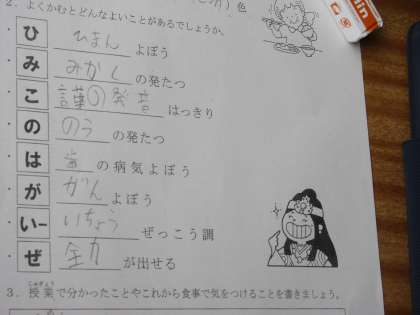 2. よくかむとどんなよいことがあるでしょうか。
ひ ひまん よぼう
み みかく の発たつ
こ 言葉の発音 はっきり
の のう の発たつ
は 歯 の病気よぼう
が がん よぼう
いー いちょう ぜっこう調
ぜ 全力 が出せる
3. 授業で分かったことやこれから食事で気をつけることを書きましょう。
じゅぎょう